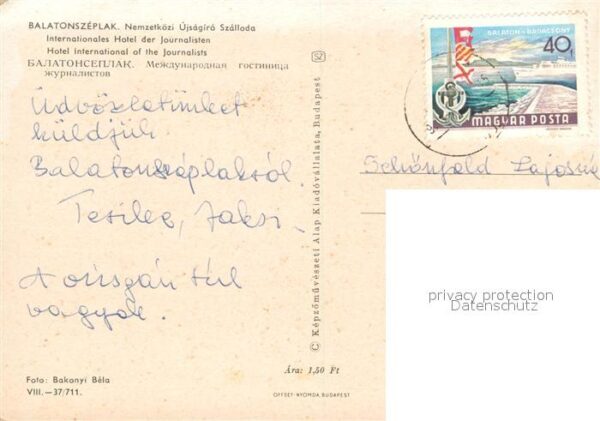 BALATONSZÉPLAK. Nemzetközi Újságíró Szálloda
Internationales Hotel der Journalisten
Hotel International of the Journalists
БАЛАТОНСЕПЛАК. Международная гостиница
журналистов
Üdvözletünket
küldjük
Balatonszéplakról.
A vizsgán túl
vagyok.
Foto: Bakonyi Béla
VIII.—37/711.
© Képzőművészeti Alap Kiadóvállalata, Budapest
SZ
Ára: 1,50 Ft
OFFSET-NYOMDA, BUDAPEST
BALATON - BADACSONY
40f
MAGYAR POSTA
Schönfeld Lajosné
privacy protection
Datenschutz